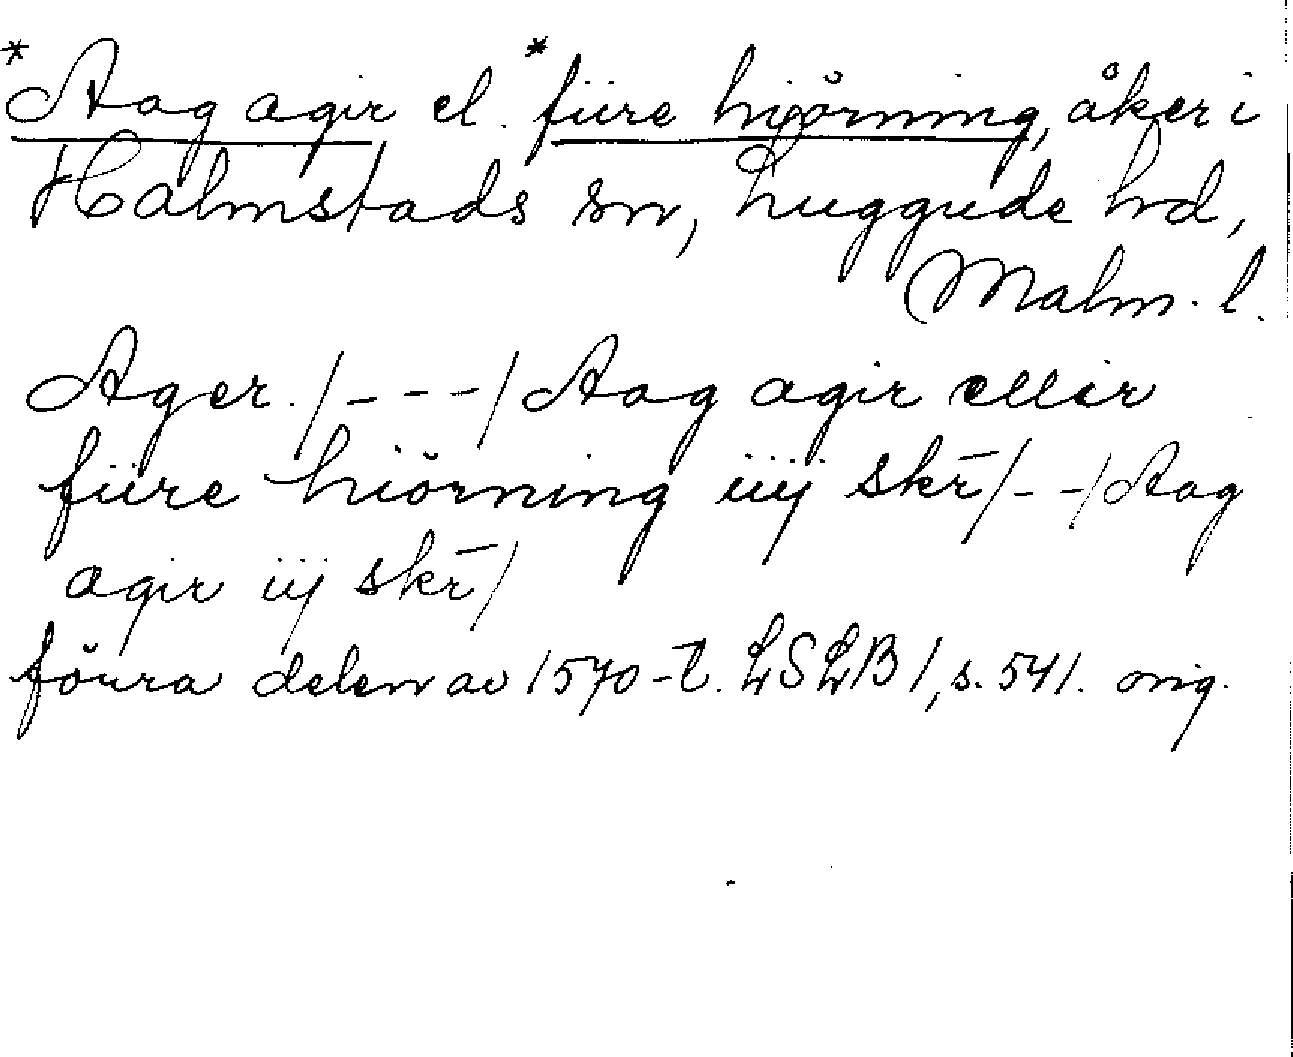 *Aag agir el. *fiire hiörning, åker i
Halmstads sn, Luggude hd,
Malm. l.
Ager. /---/ Aag agir ellir
fiire hiörning iiij skr̄/--/Aag
agir iij skr̄/
förra delen av 1570-t. LSLB 1, s. 541. orig.